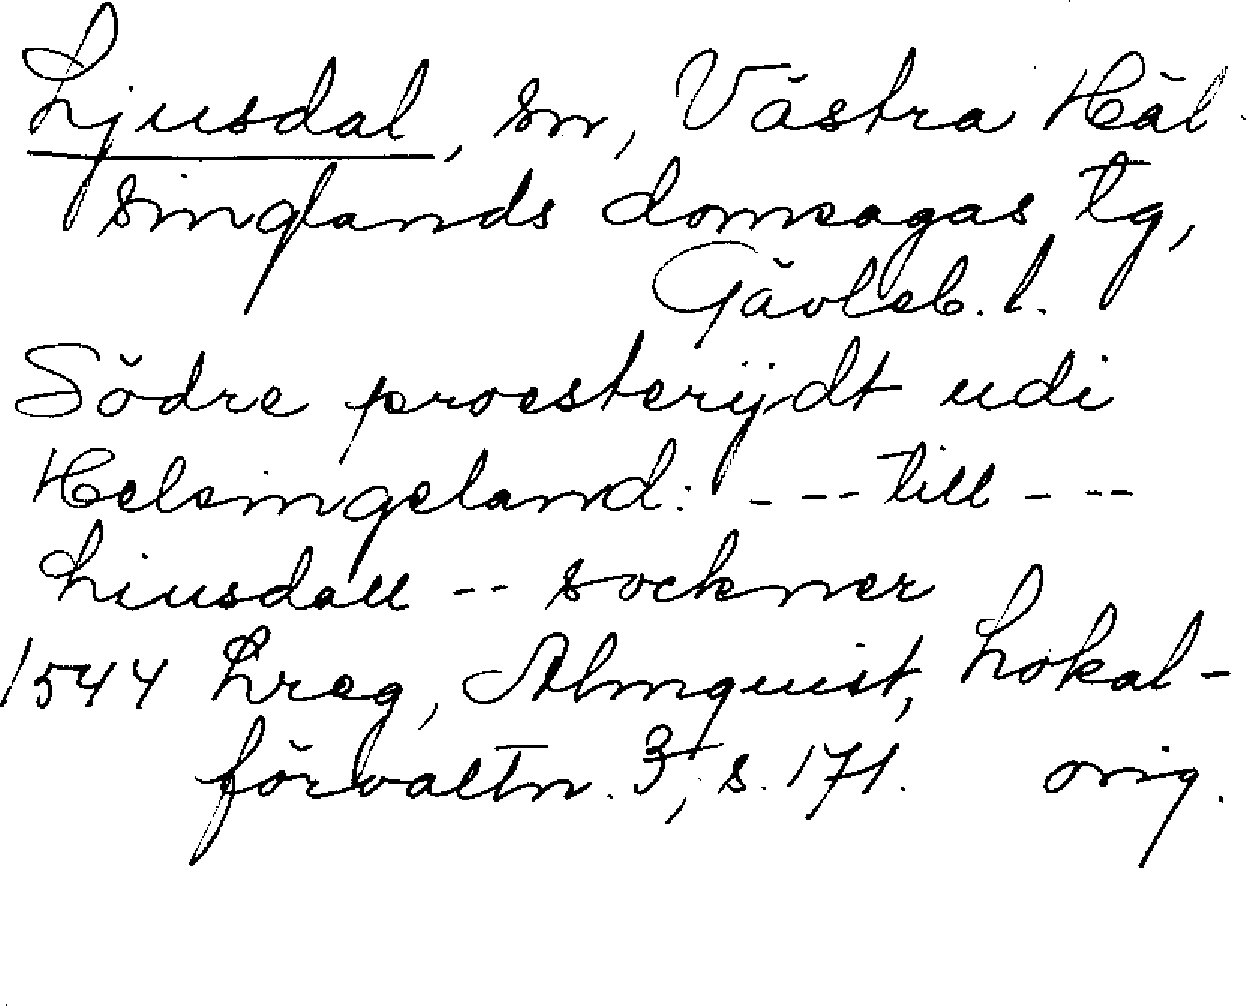 Ljusdal, sn, Västra Häl-
singlands domsagas tg,
Gävleb. l.
Södre proesterijdt udi
Helsingeland: - - - till - - -
Liusdall - - sockner
1544 Lreg, Almquist, Lokal-
förvaltn. 3, s. 171. orig.